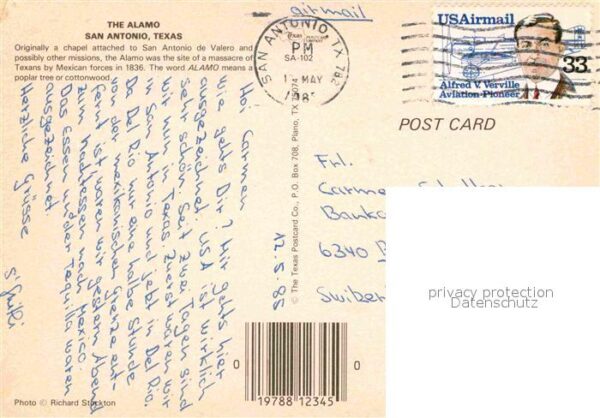 THE ALAMO
SAN ANTONIO, TEXAS
Originally a chapel attached to San Antonio de Valero and
possibly other missions, the Alamo was the site of a massacre of
Texans by Mexican forces in 1836. The word ALAMO means a
poplar tree or cottonwood.
airmail
SAN ANTONIO, TX 782
PM
SA-102
MAY
USAirmail
33
Alfred V. Verville
Aviation Pioneer
POST CARD
12.5.85
Hoi Carmen
Wie gehts Dir? Mir gehts hier
ausgezeichnet, USA ist wirklich
sehr schön. Seit zwei Tagen sind
wir nun in Texas. Zuerst waren wir
in San Antonio und jetzt in Del Rio.
Da Del Rio nur eine halbe Stunde
von der mexikanischen Grenze ent-
fernt ist waren wir gestern Abend
zum Nachtessen nach Mexico.
Das Essen und der Tequilla waren
ausgezeichnet.
Herzliche Grüsse
© The Texas Postcard Co., P.O. Box 708, Plano, TX 75074
Frl.
Carmen
6340
privacy protection
Datenschutz
0 0
19788 12345
Photo © Richard Stockton